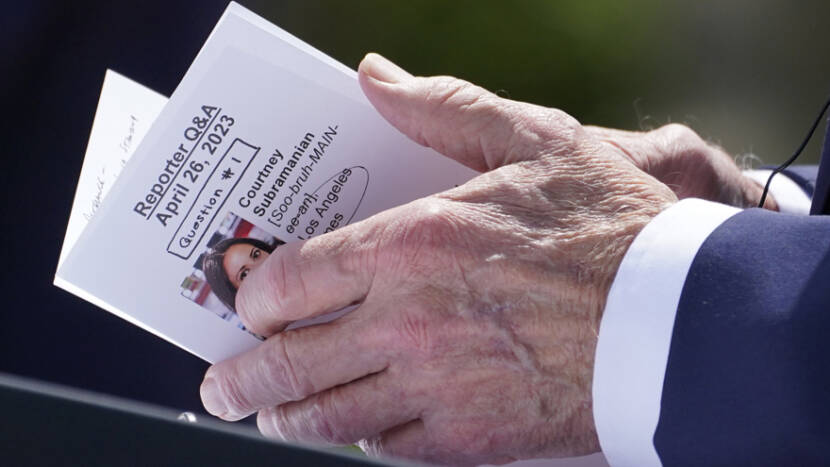 Reporter Q&A
April 26, 2023
Question #1
Courtney
Subramanian
[Soo-bruh-MAIN-
ee-an]
Los Angeles